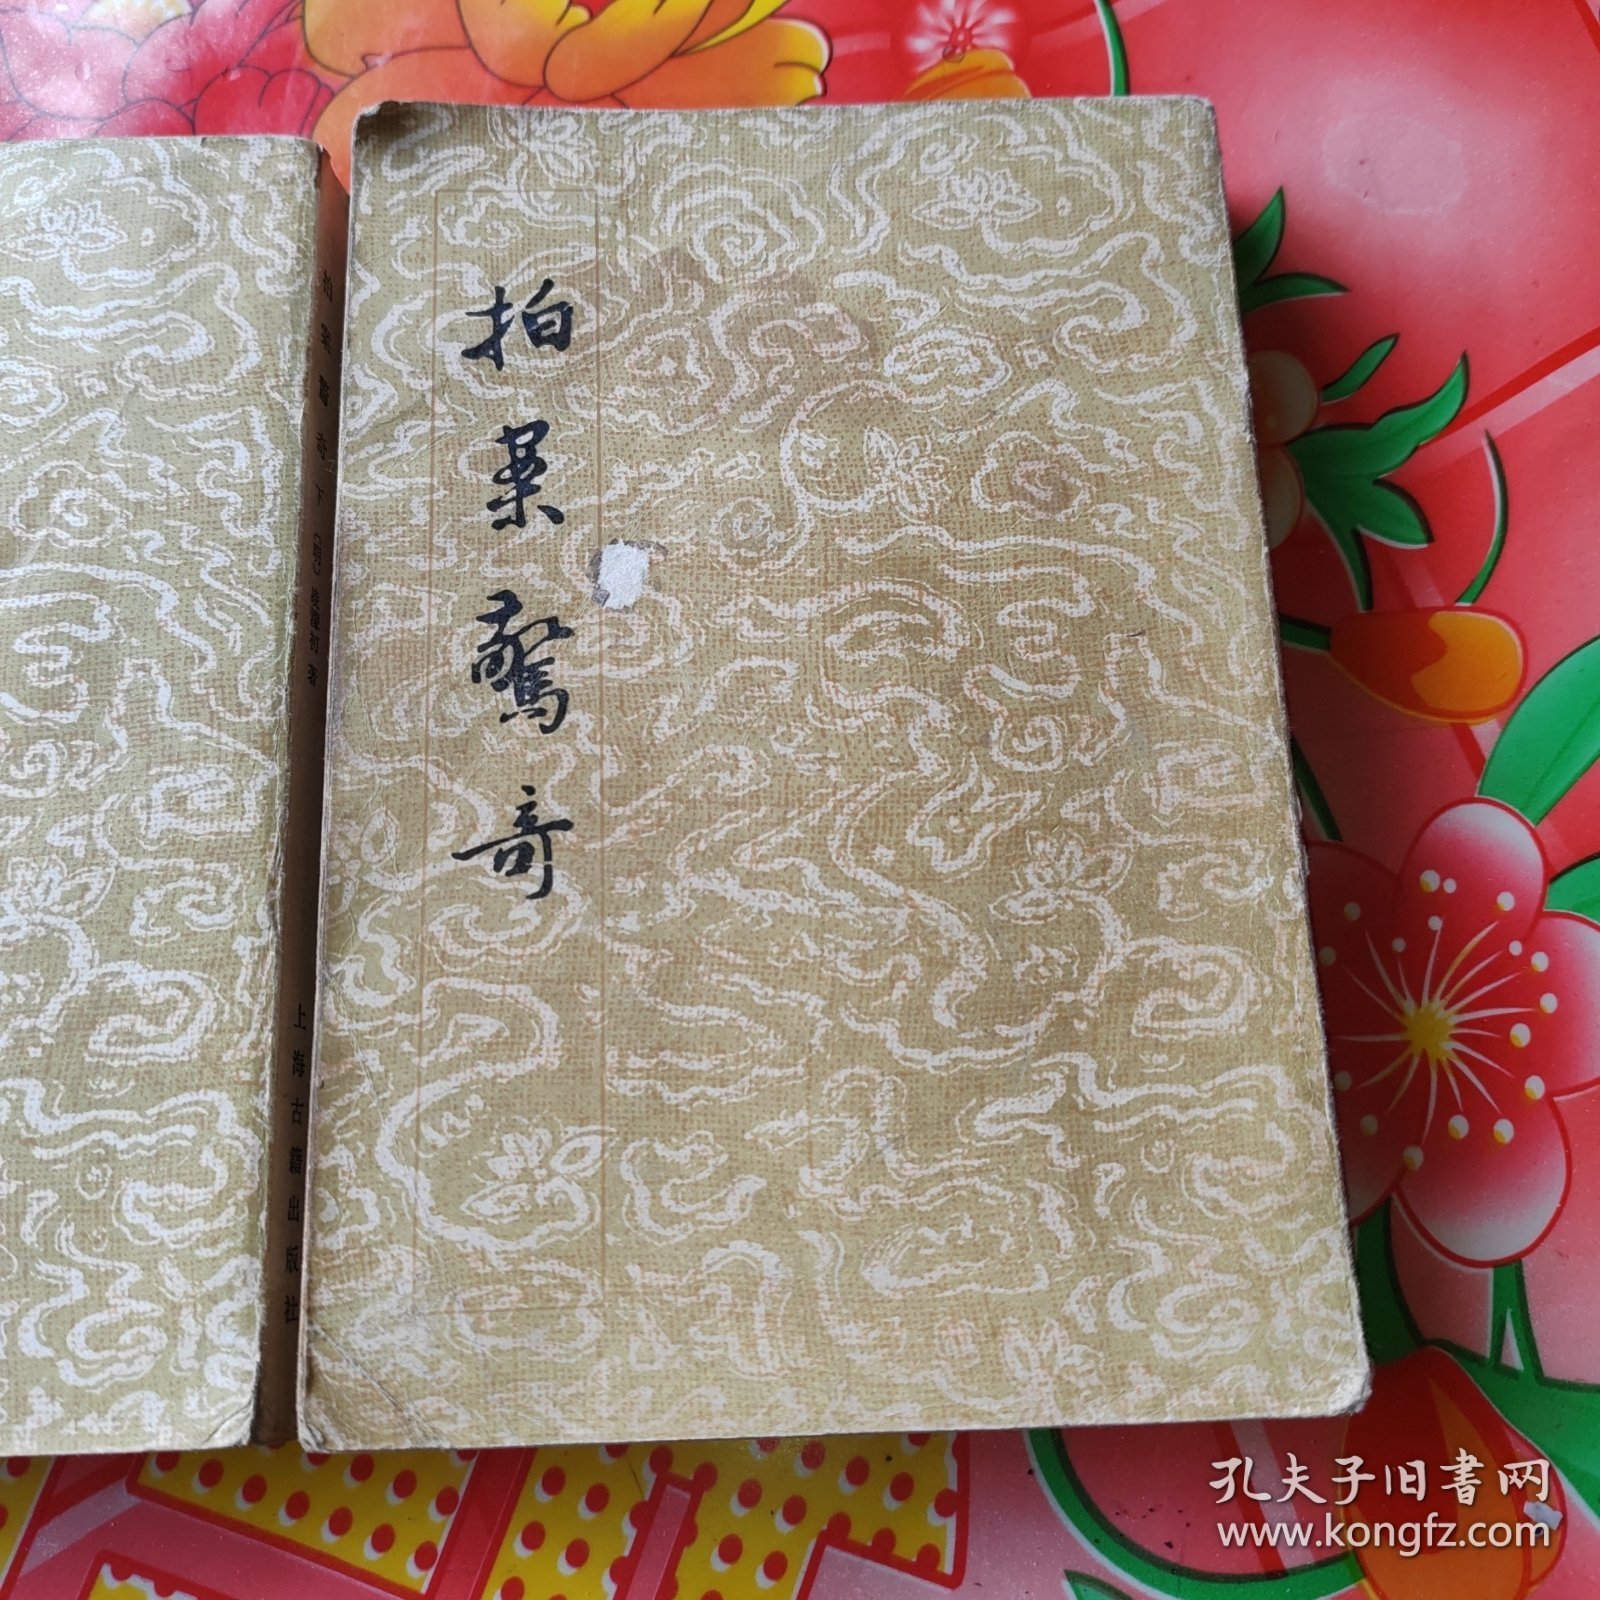 拍案驚奇
拍案驚奇 下 〔明〕凌濛初著
上海古籍出版社
孔夫子旧書网
www.kongfz.com